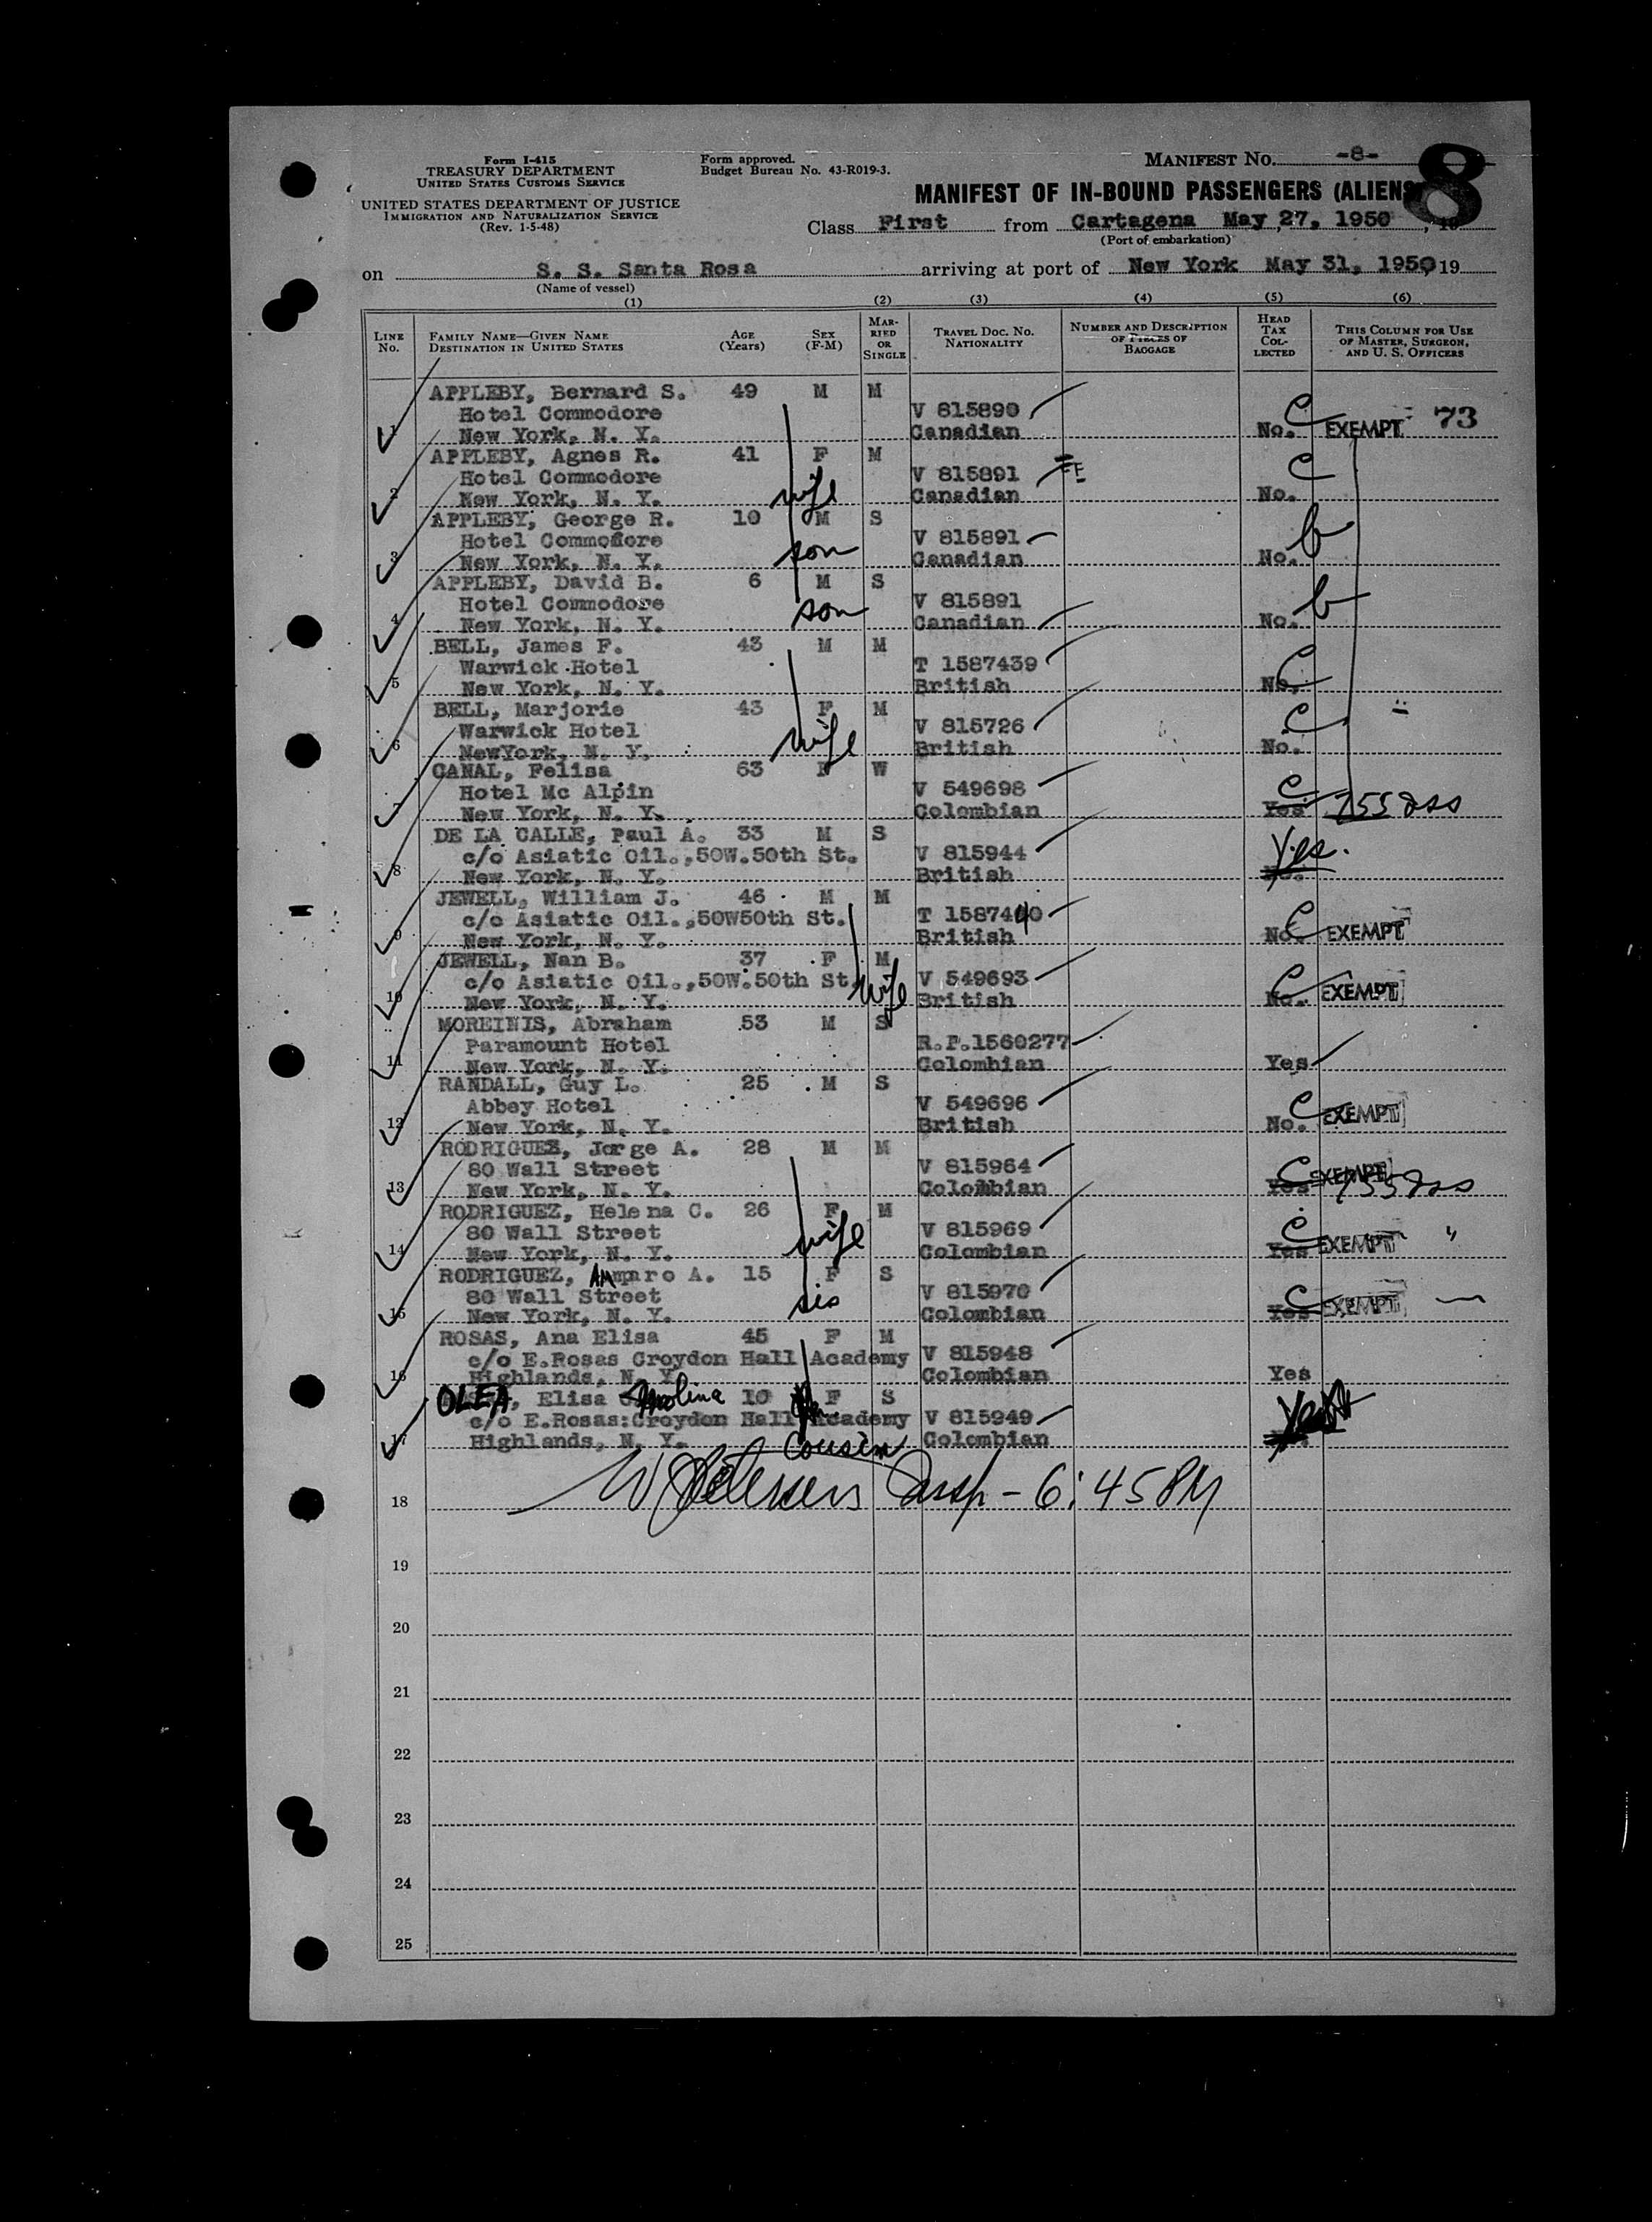 Form I-415
TREASURY DEPARTMENT
UNITED STATES CUSTOMS SERVICE
UNITED STATES DEPARTMENT OF JUSTICE
IMMIGRATION AND NATURALIZATION SERVICE
(Rev. 1-5-48)
Form approved.
Budget Bureau No. 43-R019-3.
MANIFEST NO. -8-
8
MANIFEST OF IN-BOUND PASSENGERS (ALIENS
Class First from Cartagena May 27, 1950, 19
(Port of embarkation)
on S. S. Santa Rosa arriving at port of New York May 31, 1950, 19
(Name of vessel)
(1) (2) (3) (4) (5) (6)
LINE No. FAMILY NAME—GIVEN NAME DESTINATION IN UNITED STATES AGE (Years) SEX (F-M) MARRIED OR SINGLE TRAVEL DOC. NO. NATIONALITY NUMBER AND DESCRIPTION OF PIECES OF BAGGAGE HEAD TAX COLLECTED THIS COLUMN FOR USE OF MASTER, SURGEON, AND U. S. OFFICERS
APPLEBY, Bernard S. 49 M M
Hotel Commodore V 815890 C
1 New York, N. Y. Canadian No. EXEMPT 73
APPLEBY, Agnes R. 41 F M
Hotel Commodore V 815891 C
2 New York, N. Y. wife Canadian No.
APPLEBY, George R. 10 M S
Hotel Commodore V 815891 b
3 New York, N. Y. son Canadian No.
APPLEBY, David B. 6 M S
Hotel Commodore son V 815891 b
4 New York, N. Y. Canadian No.
BELL, James F. 43 M M
Warwick Hotel T 1587439 C
5 New York, N. Y. British No.
BELL, Marjorie 43 F M
Warwick Hotel wife V 815726 C
6 NewYork, N. Y. British No.
CANAL, Felisa 63 F W
Hotel Mc Alpin V 549698 C
7 New York, N. Y. Colombian Yes
DE LA CALLE, Paul A. 33 M S
c/o Asiatic Oil.,50W.50th St. V 815944 Yes.
8 New York, N. Y. British No.
JEWELL, William J. 46 M M
c/o Asiatic Oil.,50W50th St. T 1587440 C
9 New York, N. Y. British No. EXEMPT
JEWELL, Nan B. 37 F M
c/o Asiatic Oil.,50W.50th St. wife V 549693 C
10 New York, N. Y. British No. EXEMPT
MOREINIS, Abraham 53 M S
Paramount Hotel R.P.1560277
11 New York, N. Y. Colombian Yes
RANDALL, Guy L. 25 M S
Abbey Hotel V 549696 C
12 New York, N. Y. British No. EXEMPT
RODRIGUEZ, Jorge A. 28 M M
80 Wall Street V 815964 C EXEMPT
13 New York, N. Y. Colombian Yes
RODRIGUEZ, Helena C. 26 F M
80 Wall Street wife V 815969 C
14 New York, N. Y. Colombian Yes EXEMPT "
RODRIGUEZ, Amparo A. 15 F S
80 Wall Street sis V 815970 C
15 New York, N. Y. Colombian Yes EXEMPT
ROSAS, Ana Elisa 45 F M
c/o E.Rosas Croydon Hall Academy V 815948
16 Highlands, N. Y. Colombian Yes
OLEA, Elisa Carolina 10 F S
c/o E.Rosas:Croydon Hall Academy V 815949 Yes
17 Highlands, N. Y. Cousin Colombian
18 Insp - 6:45 PM
19
20
21
22
23
24
25